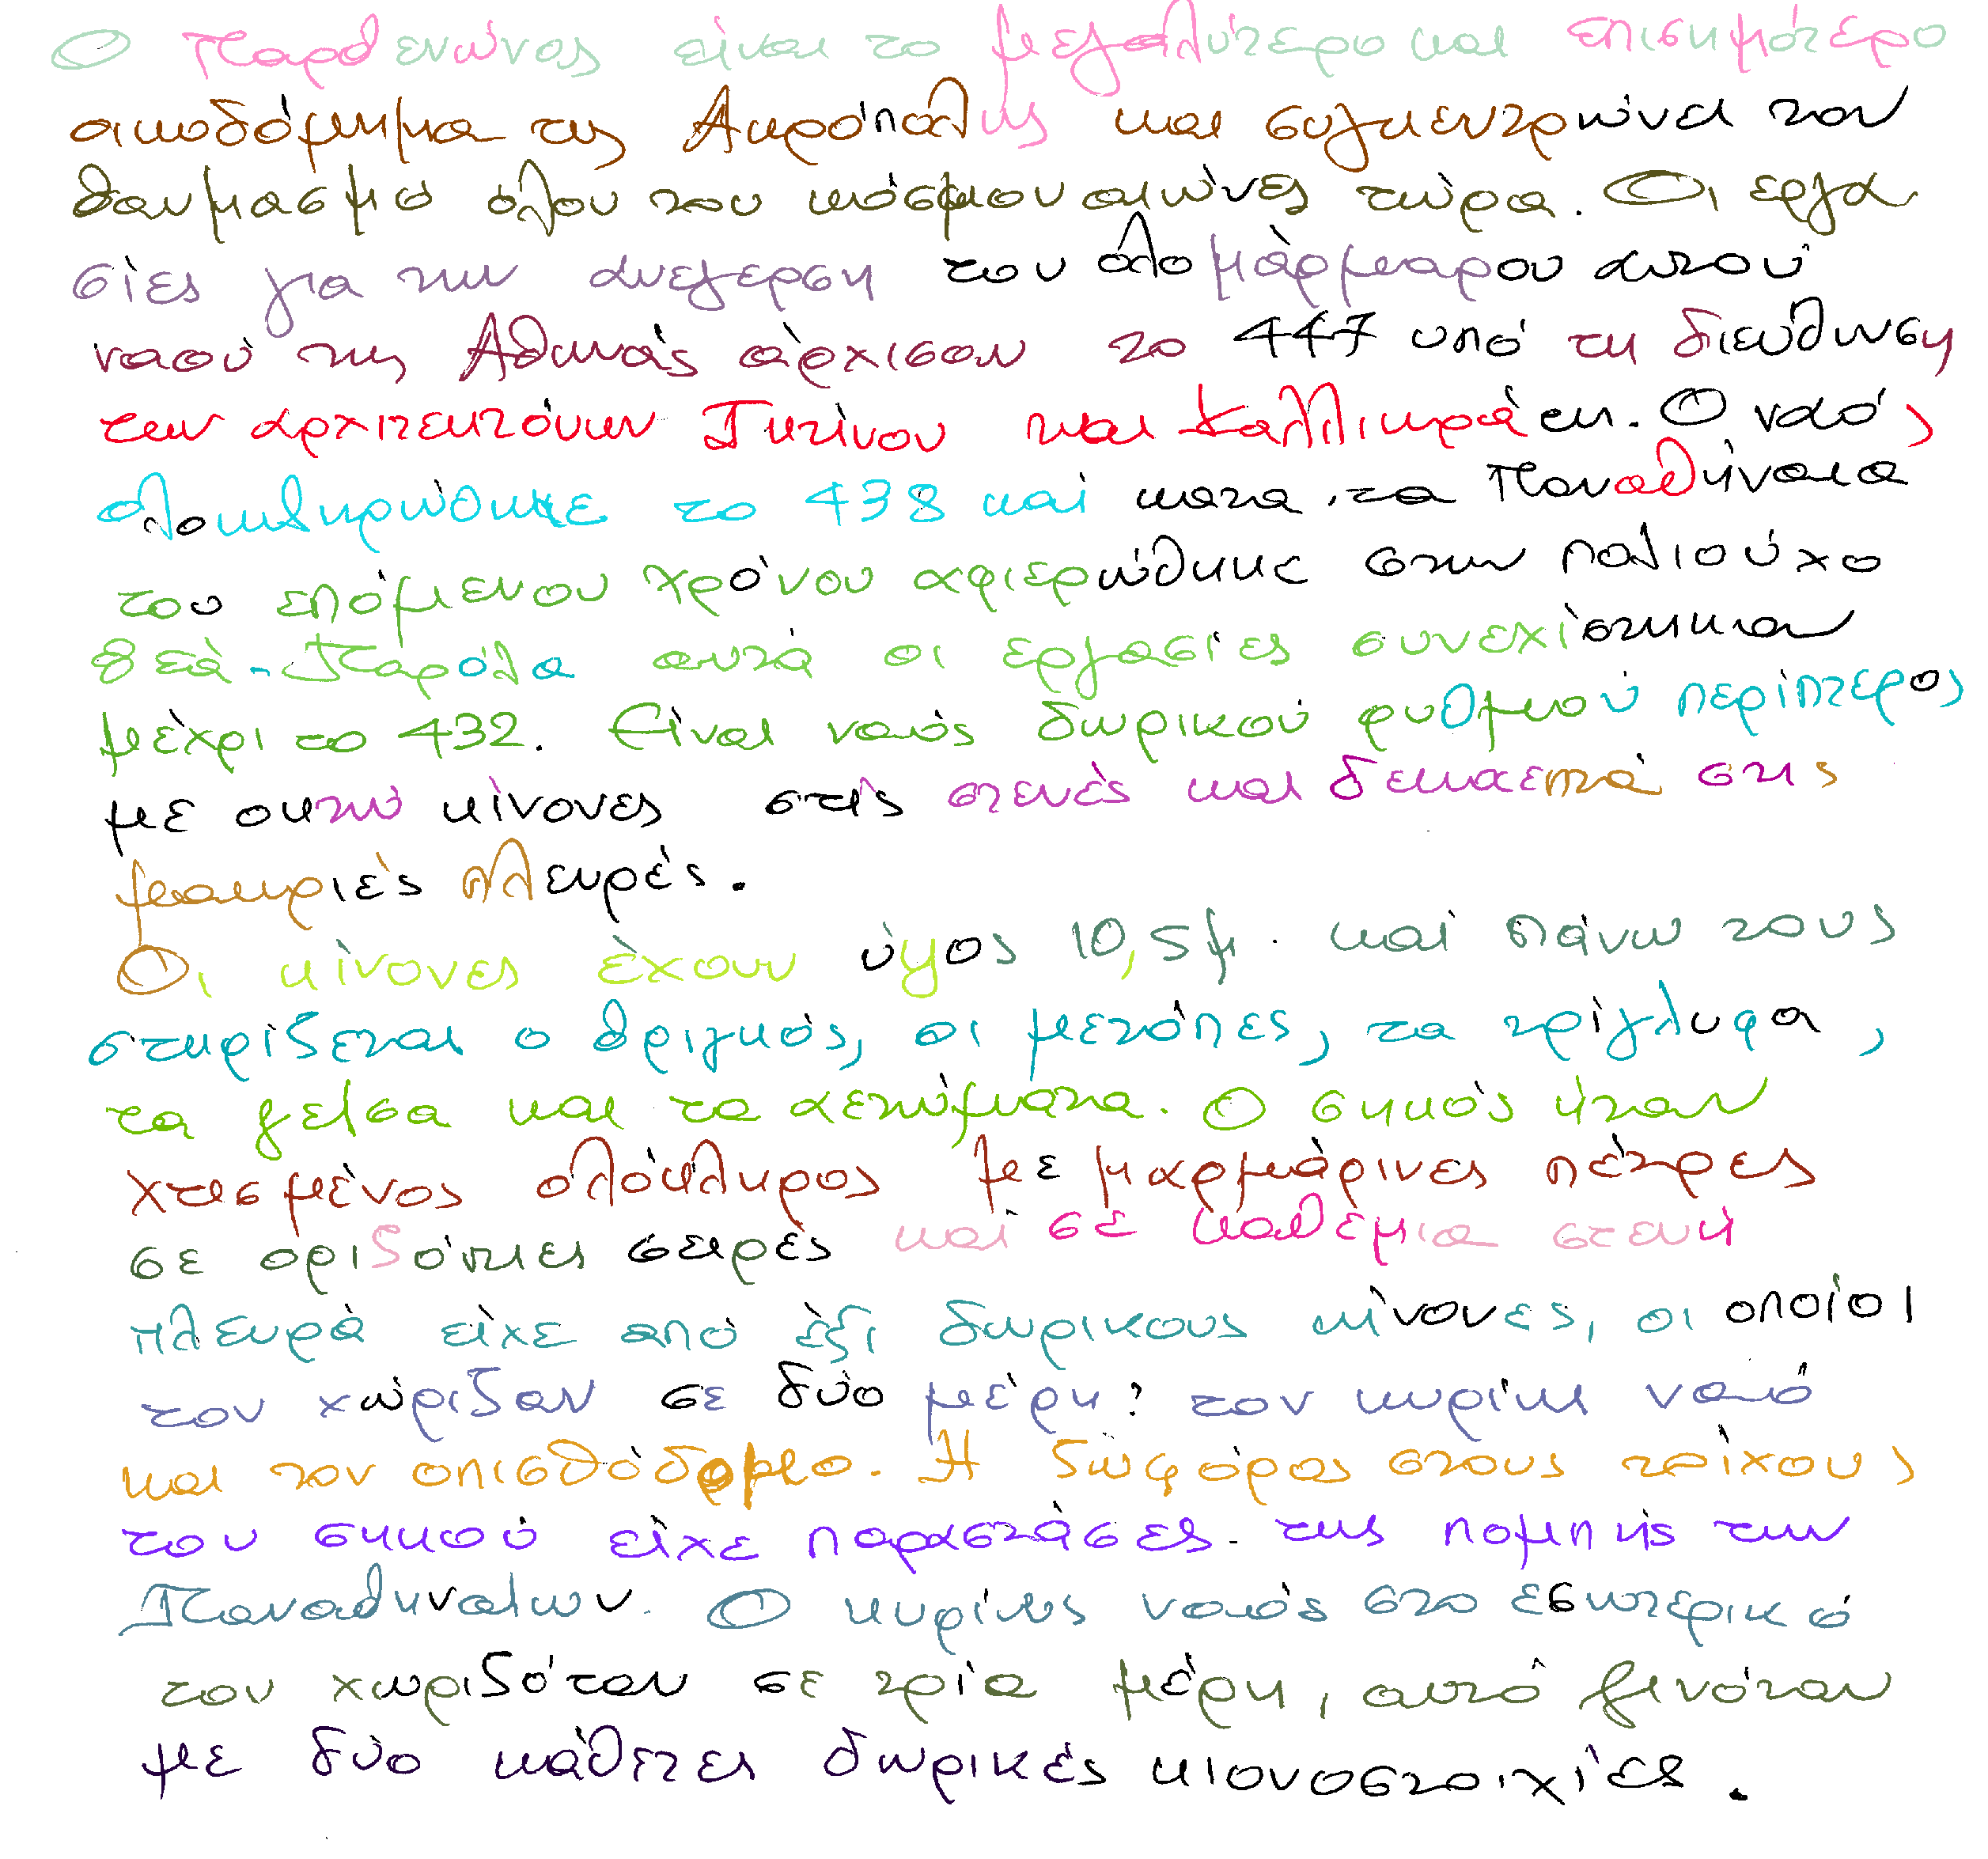 Ο Παρθενώνας είναι το μεγαλύτερο και επισημότερο
οικοδόμημα της Ακρόπολης και συγκεντρώνει τον
θαυμασμό όλου του κόσμου αιώνες τώρα. Οι εργα
σίες για την ανεγερση του ολομάρμαρου αυτού
ναού της Αθηνάς άρχισαν το 447 υπό τη διεύθυνση
των αρχιτεκτόνων Ικτίνου και Καλλικράτη. Ο ναός
ολοκληρώθηκε το 438 καί κατα τα Παναθήναια
του επόμενου χρόνου αφιερώθηκε στην πολιούχο
θεά. Παρόλα αυτά οι εργασίες συνεχίστηκαν
μέχρι το 432. Είναι ναός δωρικού ρυθμού περίπτερος
με οκτώ κίνονες στίς στενές και δεκαεπτά στις
μακριές πλευρές.
Οι κίνονες έχουν ύψος 10,5μ. καί πάνω τους
στηρίζεται ο θριγκός, οι μετόπες, τα τρίγλυφα,
τα γείσα και τα αετώματα. Ο σηκός ήταν
χτισμένος ολόκληρος με μαρμάρινες πέτρες
σε οριζόντιες σειρές καί σέ καθέμια στενή
πλευρά είχε από έξι δωρικους κίνονες, οι οποίοι
τον χώριζαν σε δύο μέρη: τον κυρίως ναό
και τον οπισθόδομο. Η ζωφόρος στους τοίχους
του σηκού είχε παραστάσεις της πομπής των
Παναθηναίων. Ο κυρίως ναός στο εσωτερικό
του χωριζόταν σε τρία μέρη, αυτό γινόταν
με δύο κάθετες δωρικές κιονοστοιχίες.